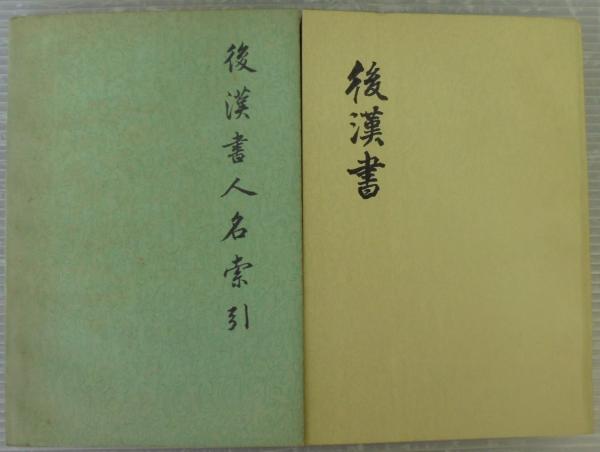 後漢書人名索引
後漢書